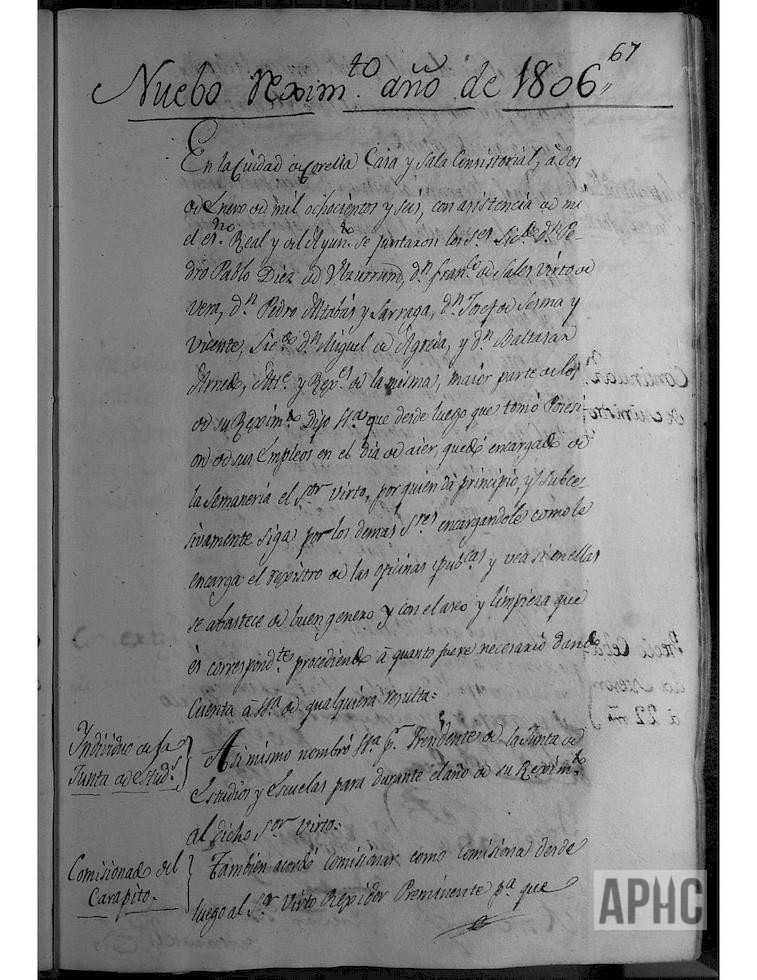 67
Nuebo Rexim.to año de 1806,,
En la Ciudad de Corella Casa y Sala Consistorial, á dos
de Enero de mil ochocientos y seis, con asistencia de mi
el es.no Real y del Ayun.to se juntaron los ses. Lic.do d.n Pe-
dro Pablo Diez de Ulzurrun, d.n fran.co de Sales Virto de
vera, d.n Pedro Attabás y Sarraga, d.n Josef de Sesma y
Vicente, Lic.do d.n Miguel de Agreda, y d.n Baltasar
Arnedo, Att.e y Rex.es de la misma, maior parte de los
de su Rexim.to Dijo S.ª que desde luego que tomó Posesi
on de sus Empleos en el dia de aier, quedó encargado de
la semaneria el S.or Virto, por quien dá principio, y subce
sivamente siga por los demas S.res encargandole como le
encarga el rexistro de las oficinas pub.cas y vea si en ellas
se abastece de buen genero y con el aseo y limpieza que
es correspond.te procediendo á quanto fuere necesario dando
Cuenta á S.ª de qualquiera resulta=
Individuo de la
Junta de Estud.s
Asi mismo nombró S.ª p.r Presidente de la Junta de
Estudios y Escuelas para durante el año de su Rexim.to
al dicho S.or Virto=
Comisionado del
Carapito.
Tambien acordó comisionar como comisiona desde
luego al S.or Virto Rexidor Preminente p.a que
APHC